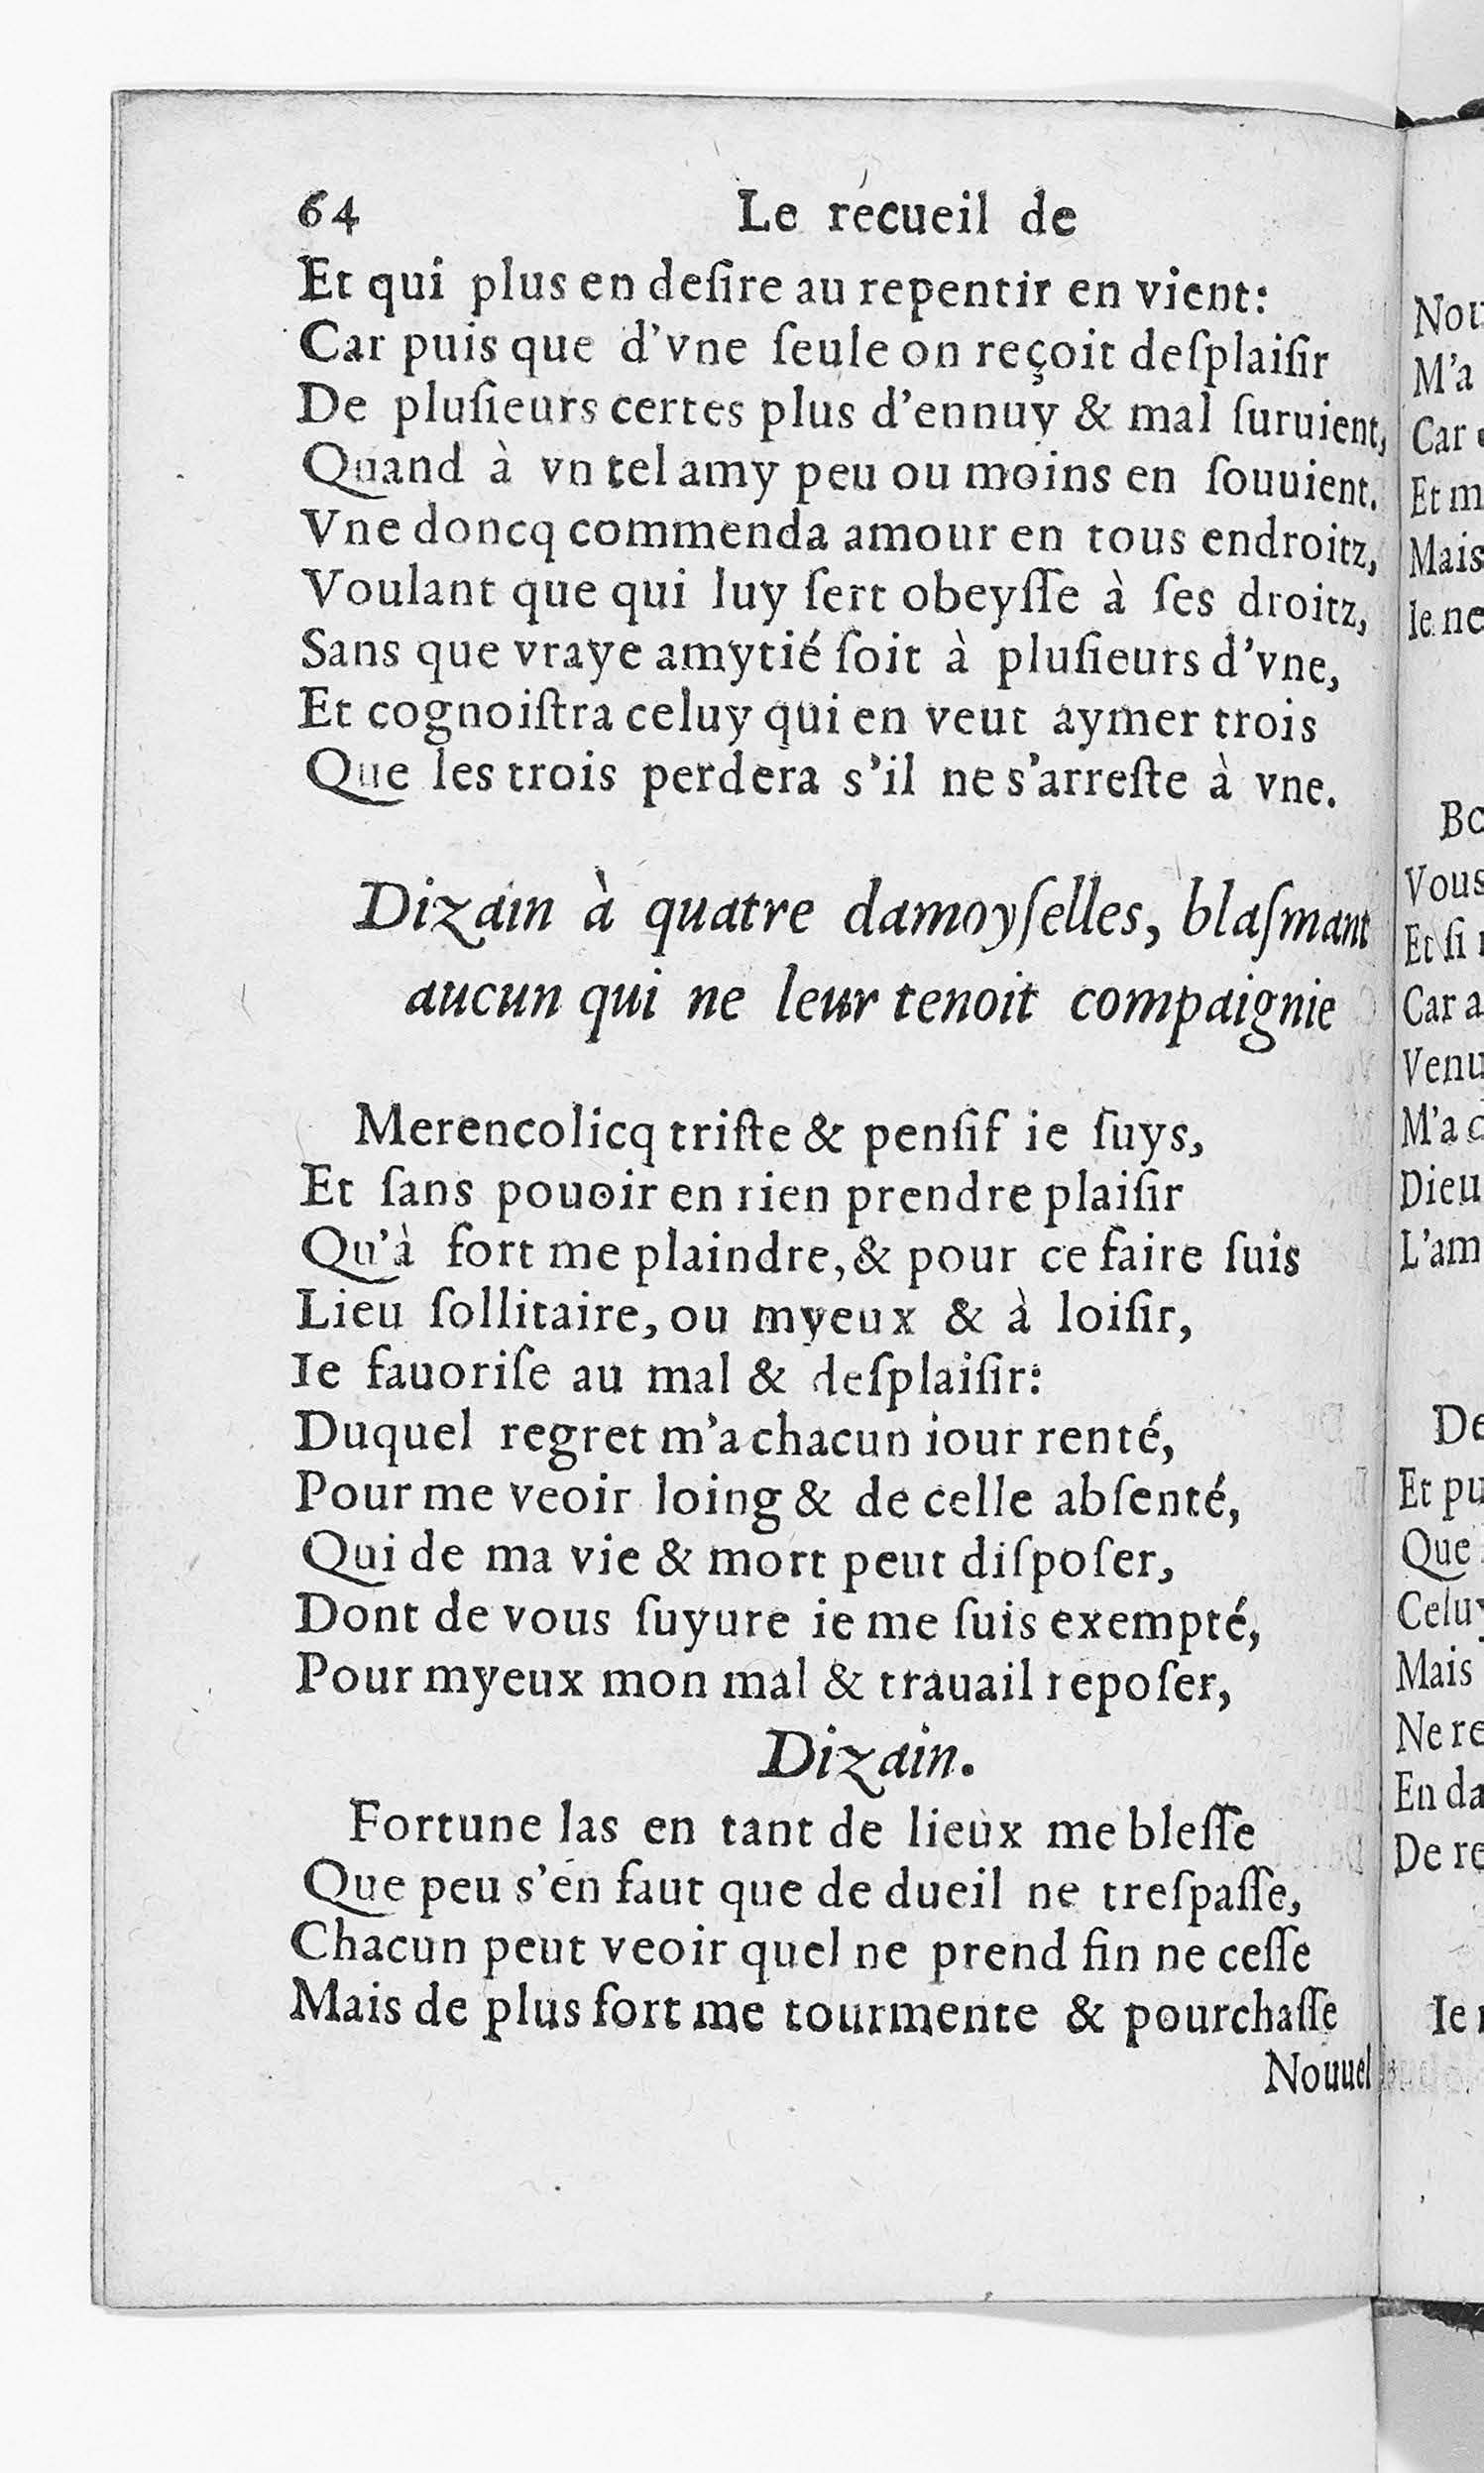 64 Le recueil de
Et qui plus en deſire au repentir en vient:
Car puis que d'vne ſeule on reçoit deſplaiſir
De pluſieurs certes plus d'ennuy & mal ſuruient,
Quand à vn tel amy peu ou moins en ſouuient.
Vne doncq commenda amour en tous endroitz,
Voulant que qui luy ſert obeyſſe à ſes droitz,
Sans que vraye amytié ſoit à pluſieurs d'vne,
Et cognoiſtra celuy qui en veut aymer trois
Que les trois perdera s'il ne s'arreſte à vne.
Dizain à quatre damoyſelles, blaſmant
aucun qui ne leur tenoit compaignie
Merencolicq triſte & penſif ie ſuys,
Et ſans pouoir en rien prendre plaiſir
Qu'à fort me plaindre, & pour ce faire ſuis
Lieu ſollitaire, ou myeux & à loiſir,
Ie fauoriſe au mal & deſplaiſir:
Duquel regret m'a chacun iour renté,
Pour me veoir loing & de celle abſenté,
Qui de ma vie & mort peut diſpoſer,
Dont de vous ſuyure ie me ſuis exempté,
Pour myeux mon mal & trauail repoſer,
Dizain.
Fortune las en tant de lieux me bleſſe
Que peu s'en faut que de dueil ne treſpaſſe,
Chacun peut veoir quel ne prend fin ne ceſſe
Mais de plus fort me tourmente & pourchaſſe
Nouuel
M'a
Car
Et
Mais
Ie ne
Vous
Et ſi
Car
M'a
Dieu
Et
Que
Mais
Ne
En
De
Ie